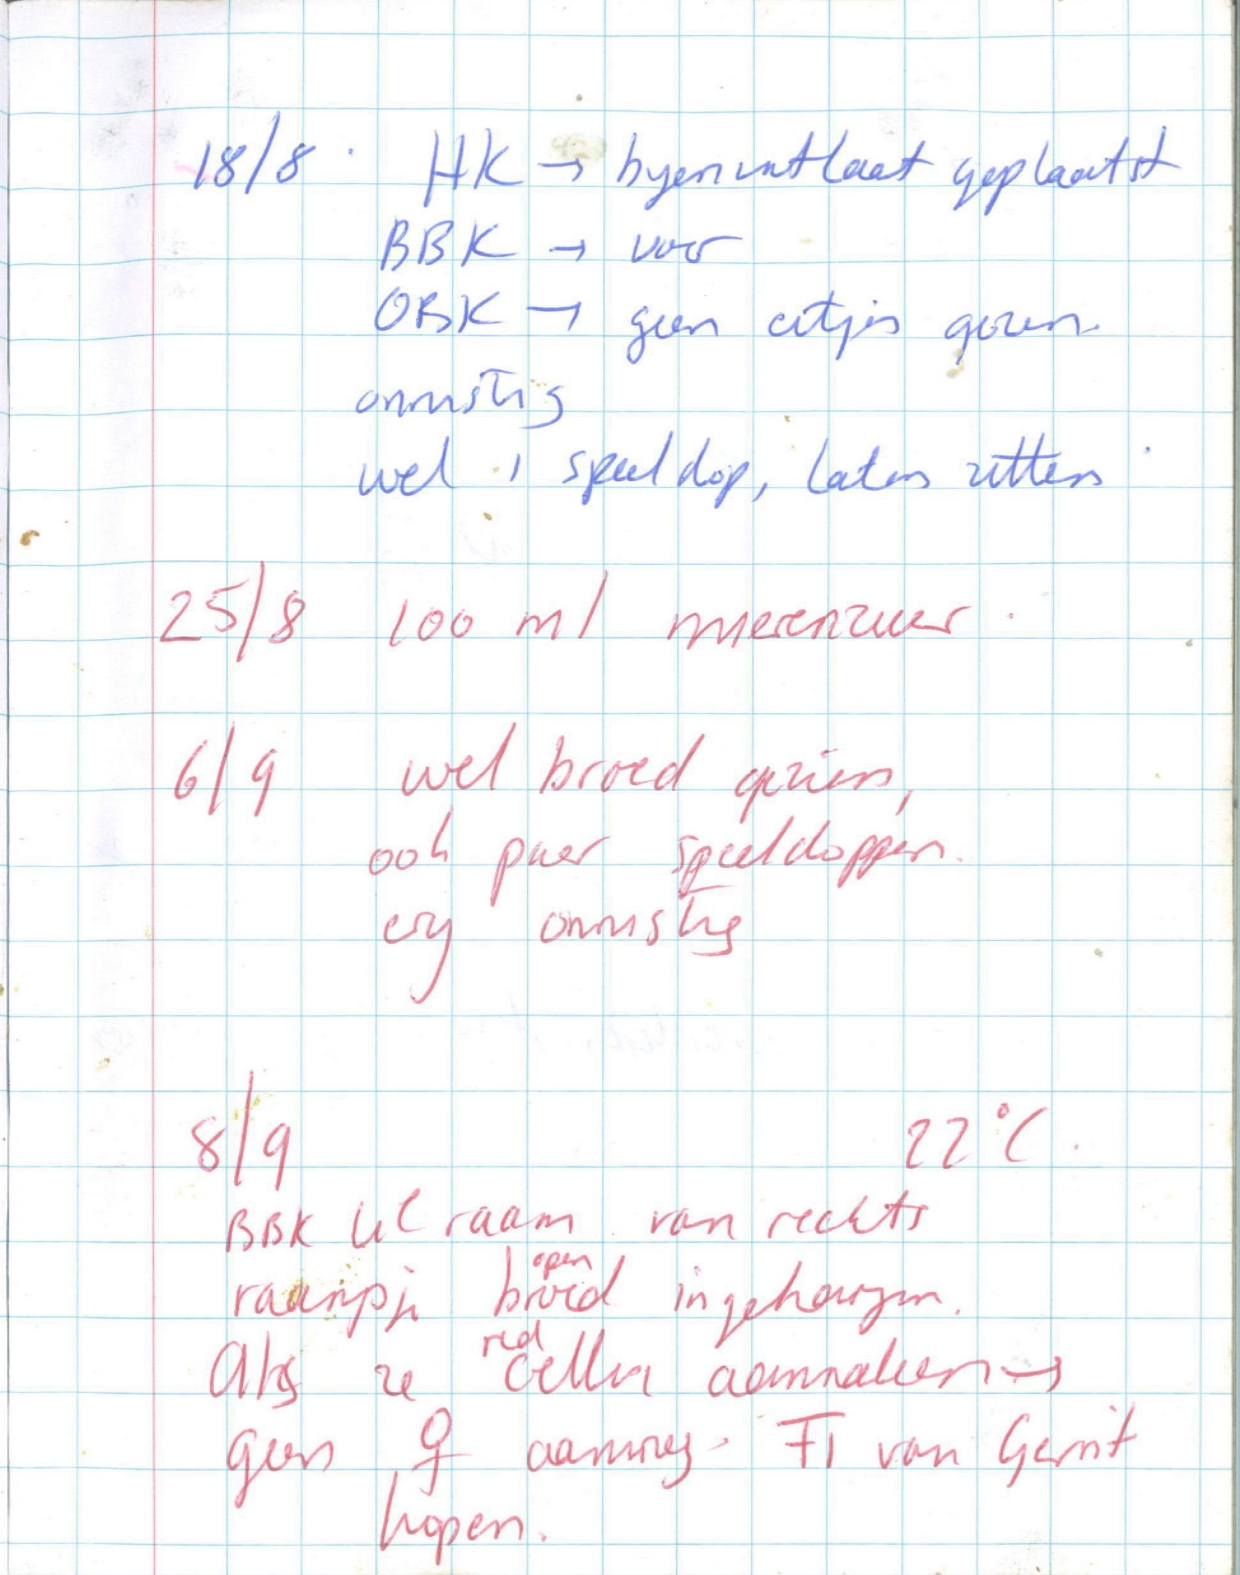 18/8 HK → byenuitlaat geplaatst
BBK → voer
OBK → geen eitjes gezien.
onrustig
wel 1 speeldop, laten zitten
25/8 100 ml mierenzuur.
6/9 wel broed gezien,
ook paar speeldoppen.
erg onrustig
8/9 22°C.
BBK uit raam van rechts
raampje open broed ingehangen.
Als ze red cellen aanmaken →
geen ♀ aanwezig. F1 van Gerrit
kopen.